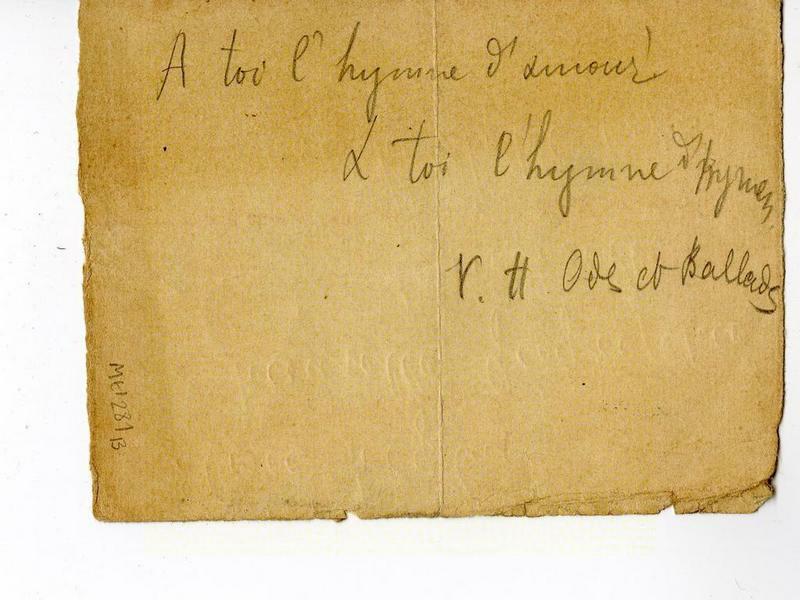 A toi l'hymne d'amour!
A toi l'hymne d'Hymen,
V. H Odes et Ballads
MH281B